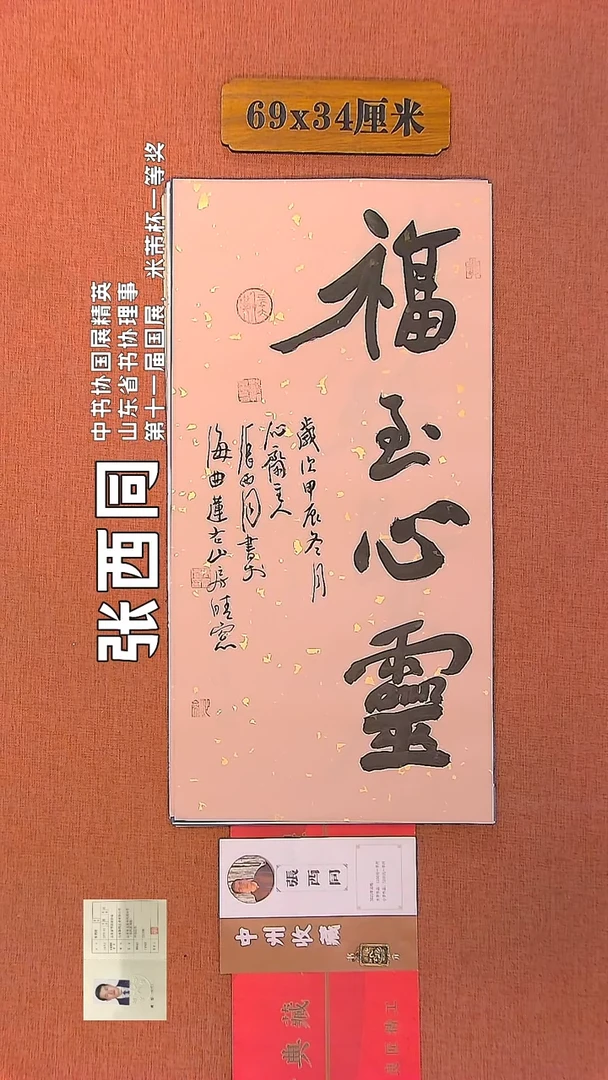 69x34厘米
福至心靈
歲次甲辰冬月
心齋主人
張西同書於
海曲蓮右山房晴窗
张西同
中书协国展精英
山东省书协理事
第十一届国展，米芾杯一等奖
張西同
中州收藏
典藏